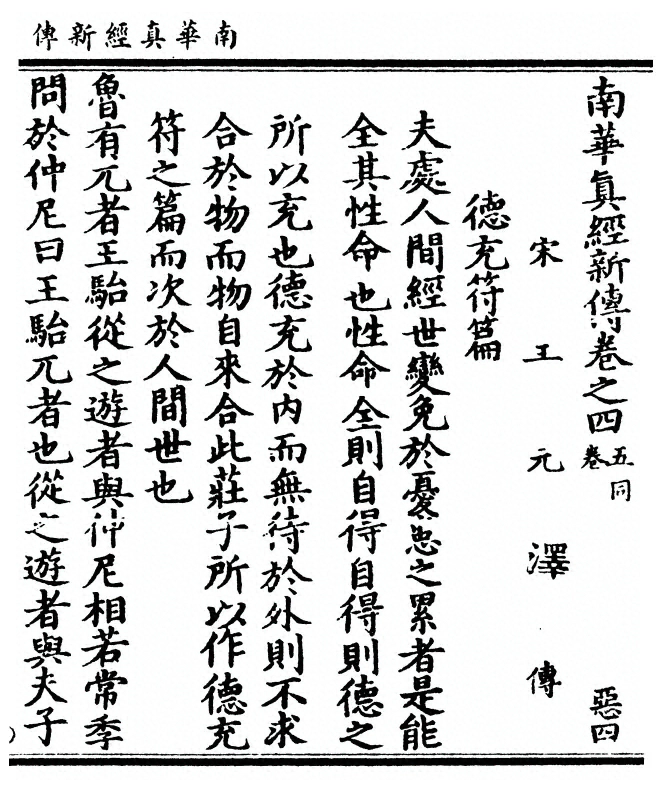 南華真經新傳
南華真經新傳卷之四 五同卷 惡四
宋王元澤傳
德充符篇
夫處人間經世變免於憂患之累者是能
全其性命也性命全則自得自得則德之
所以充也德充於內而無待於外則不求
合於物而物自來合此莊子所以作德充
符之篇而次於人間世也
魯有兀者王駘從之遊者與仲尼相若常季
問於仲尼曰王駘兀者也從之遊者與夫子